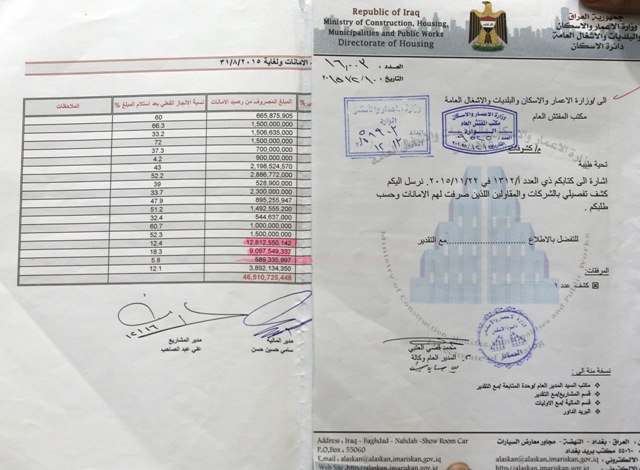 Republic of Iraq
Ministry of Construction, Housing,
Municipalities and Public Works
Directorate of Housing
جمهورية العراق
وزارة الاعمار والاسكان
والبلديات والاشغال العامة
دائرة الاسكان
العدد :
التاريخ :
الى /وزارة الاعمار والاسكان والبلديات والاشغال العامة
مكتب المفتش العام
م/ كشوفات
تحية طيبة
اشارة الى كتابكم ذي العدد أ/١٣١٢ في ٢٠١٥/١١/٢٢. نرسل اليكم
كشف تفصيلي بالشركات والمقاولين اللذين صرفت لهم الامانات وحسب
طلبكم .
للتفضل بالاطلاع مع التقدير
المرفقات:
كشف عدد ١
المدير العام وكالة
نسخة منه الى :
مكتب السيد المدير العام /وحدة المتابعة /مع التقدير
قسم المشاريع/مع التقدير
قسم المالية /مع الاوليات
البريد الداور
Address , Iraq - Baghdad - Nahdah -Show Room Car
P.O.Box : 55060
E.mail , alaskan@alaskan.imariskan.gov.iq
العراق - بغداد - النهضة - مجاور معارض السيارات
الامانات ولغاية ٣١/٨/٢٠١٥
المبلغ المصروف من رصيد الامانات
نسبة الانجاز الفعلي بعد استلام المبلغ %
الملاحظات
665,875,905 60
1,500,000,000 66.3
1,506,635,000 33.2
1,500,000,000 72
700,000,000 37.3
900,000,000 4.2
2,198,524,570 43
2,886,772,000 52.2
528,900,000 39
2,300,000,000 33.7
895,255,947 47.9
1,492,555,200 51.2
544,637,000 32.4
1,000,000,000 60.7
1,500,000,000 52.3
12,812,550,142 12.4
9,097,549,337 18.3
589,335,997 5.8
3,892,134,350 12.1
46,510,725,448
مدير المالية
سامي حسين حسن
مدير المشاريع
علي عبد الصاحب